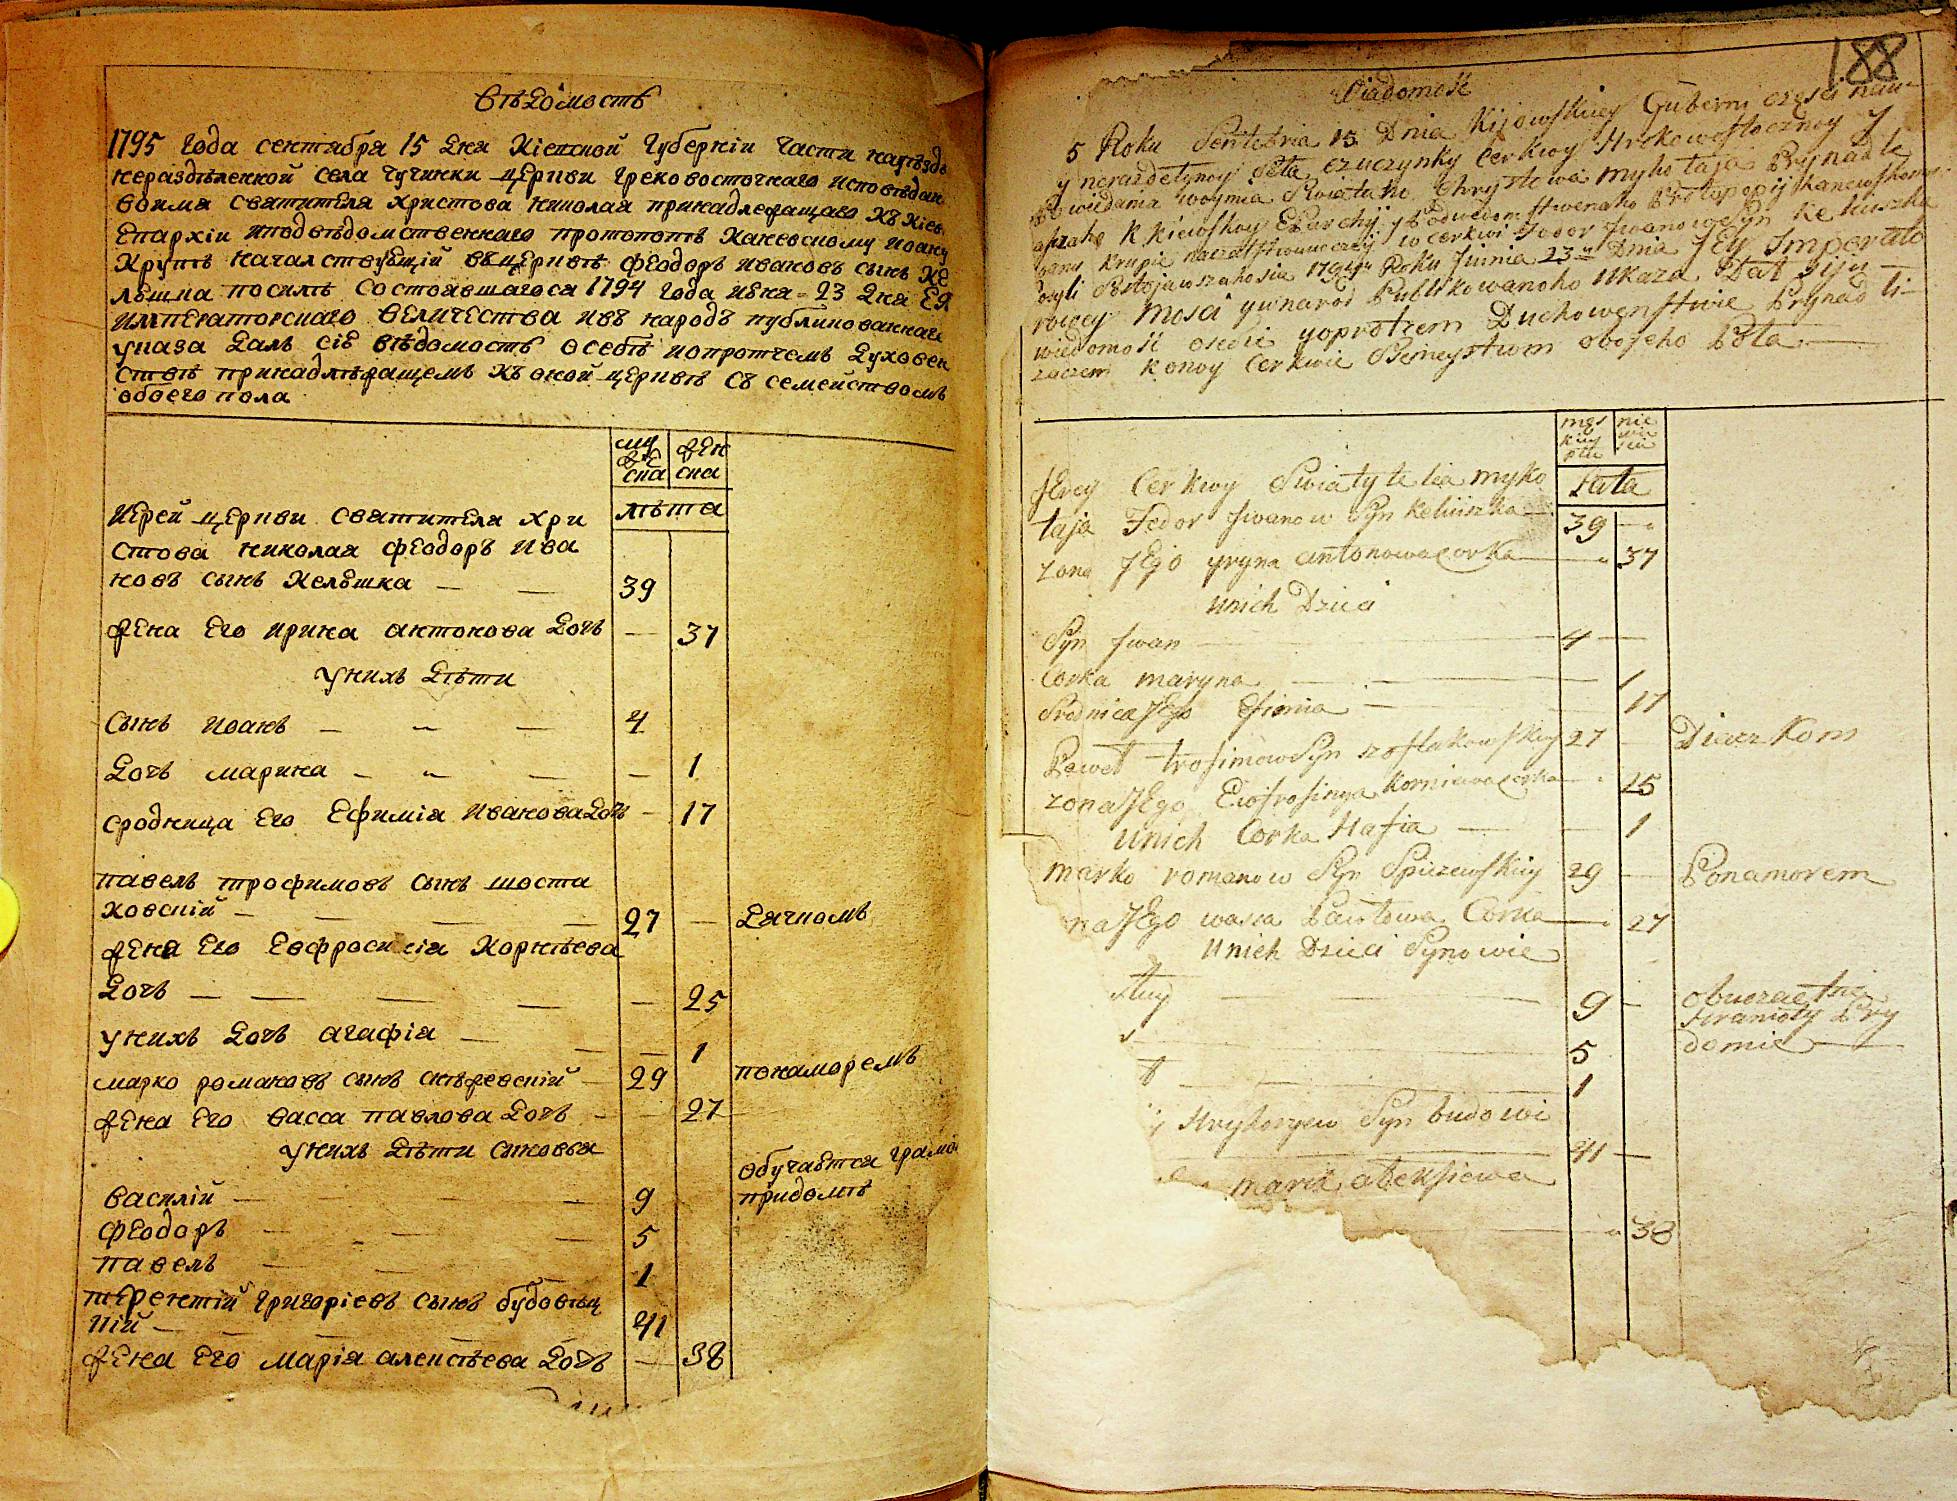 Вѣдомость
1795 года сентября 15 дня Кіевской Губерніи части науѣзды
нераздѣленной села Чучинки церкви Грековосточнаго исповѣдан
воимя святителя Христова Николая принадлежащаго къ Кіев
Епархіи иподвѣдомственнаго протопопѣ Каневскому Иоану
Крупѣ началствующій въ церквѣ Феодоръ Ивановъ сынъ Ке
люшка посилѣ состоявшагося 1794 года июня 23 дня ЕЯ
ИМПЕРАТОРСКАГО ВЕЛИЧЕСТВА ивъ народъ публикованнаго
указа далъ сію вѣдомость осебѣ ипопротчемъ духовен
ствѣ принадлѣжащемъ къ оной церквѣ съ семействомъ
обоего пола
му
же
ска
жен
ска
лѣта
Иерей церкви святителя Хри
стова Николая Феодоръ Ива
новъ сынъ Келюшка — — 39
жена Его Ирина Антонова дочь — 37
у нихъ дѣти
сынъ Иоанъ — — — 4
дочь Марина — — — — 1
сродница Его Ефимія Иванова дочь — 17
Павелъ Трофимовъ сынъ Шоста
ковскій — — — — 27 — дячкомъ
жена Его Евфросинія Корнѣева
дочь — — — — — 25
у нихъ дочь Агафія — — — 1
Марко Романовъ сынъ Спѣжевскій — 29 понаморемъ
жена Его Васса Павлова дочь — — 27
у нихъ дѣти сыновья
Василій — — — 9
обучается грамо
придомѣ
Феодоръ — — — 5
Павелъ — — — 1
Терентій Григоріевъ сынъ Будовѣц
кій — — — — 41
жена Его Марія Алексѣева дочь — 38
188
Wiadomość
5 Roku Sentebria 15 Dnia Kijowskiey Guberni częsci nau-
y nerazdełynoy Seła Czuczynky Cerkwy Hrekowostocznoy y
Powiedania woymia Swiatane Chrystowa Mykołaja Prynadle
K Kiewskoy Eparchij y Podwedomstwenaho Protopopij Kanewskomu
Krupie naczalstwuiuczej w Cerkwi Fedor Iwanow Syn Keluszka
Sostojawszahosia 1794 Roku Junia 23 Dnia JEy Imperato
Mosci y w narod Publikowanoho Ukaza Dał siju
wiedomość osebie yoprotczem Duchowenstwie Prynadli-
K onoy Cerkwie Semeystwom oboieho Pola —
męs
kiey
płci
nie
wie
ściey
Łata
JErey Cerkwy Swiatytelia Myko
łaja Fedor Iwanow Syn Keluszka — 39 —
zona JEgo Yryna Antonowa Corka — 37
Unich Dzieci
Syn Iwan — 4 —
Corka Maryna — — 1
Srodnica JEgo Efimia — — 17
Paweł Trofimow Syn Szostakowskiy 27 — Diaczkom
zona JEgo Ewfrosinya Korniewa Corka — 25
Unich Corka Hafia — — 1
Marko Romanow Syn Spiżewskiy 29 — Ponamorem
na JEgo Wassa Pawłowa Corka — 27
Unich Dzieci Synowie
9 —
obuczaetsia
Hramoty Pry
domie —
5
1
y Hryhoryew Syn Budowi
41 —
Maria Aleksiewa
38